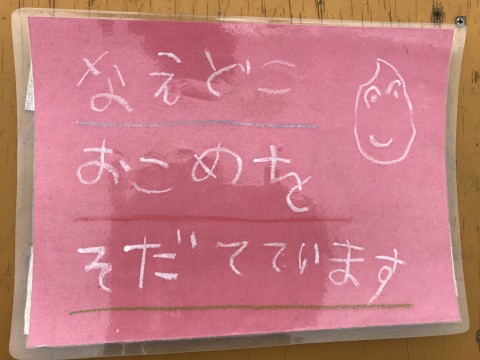 なえどこ
おこめを
そだてています